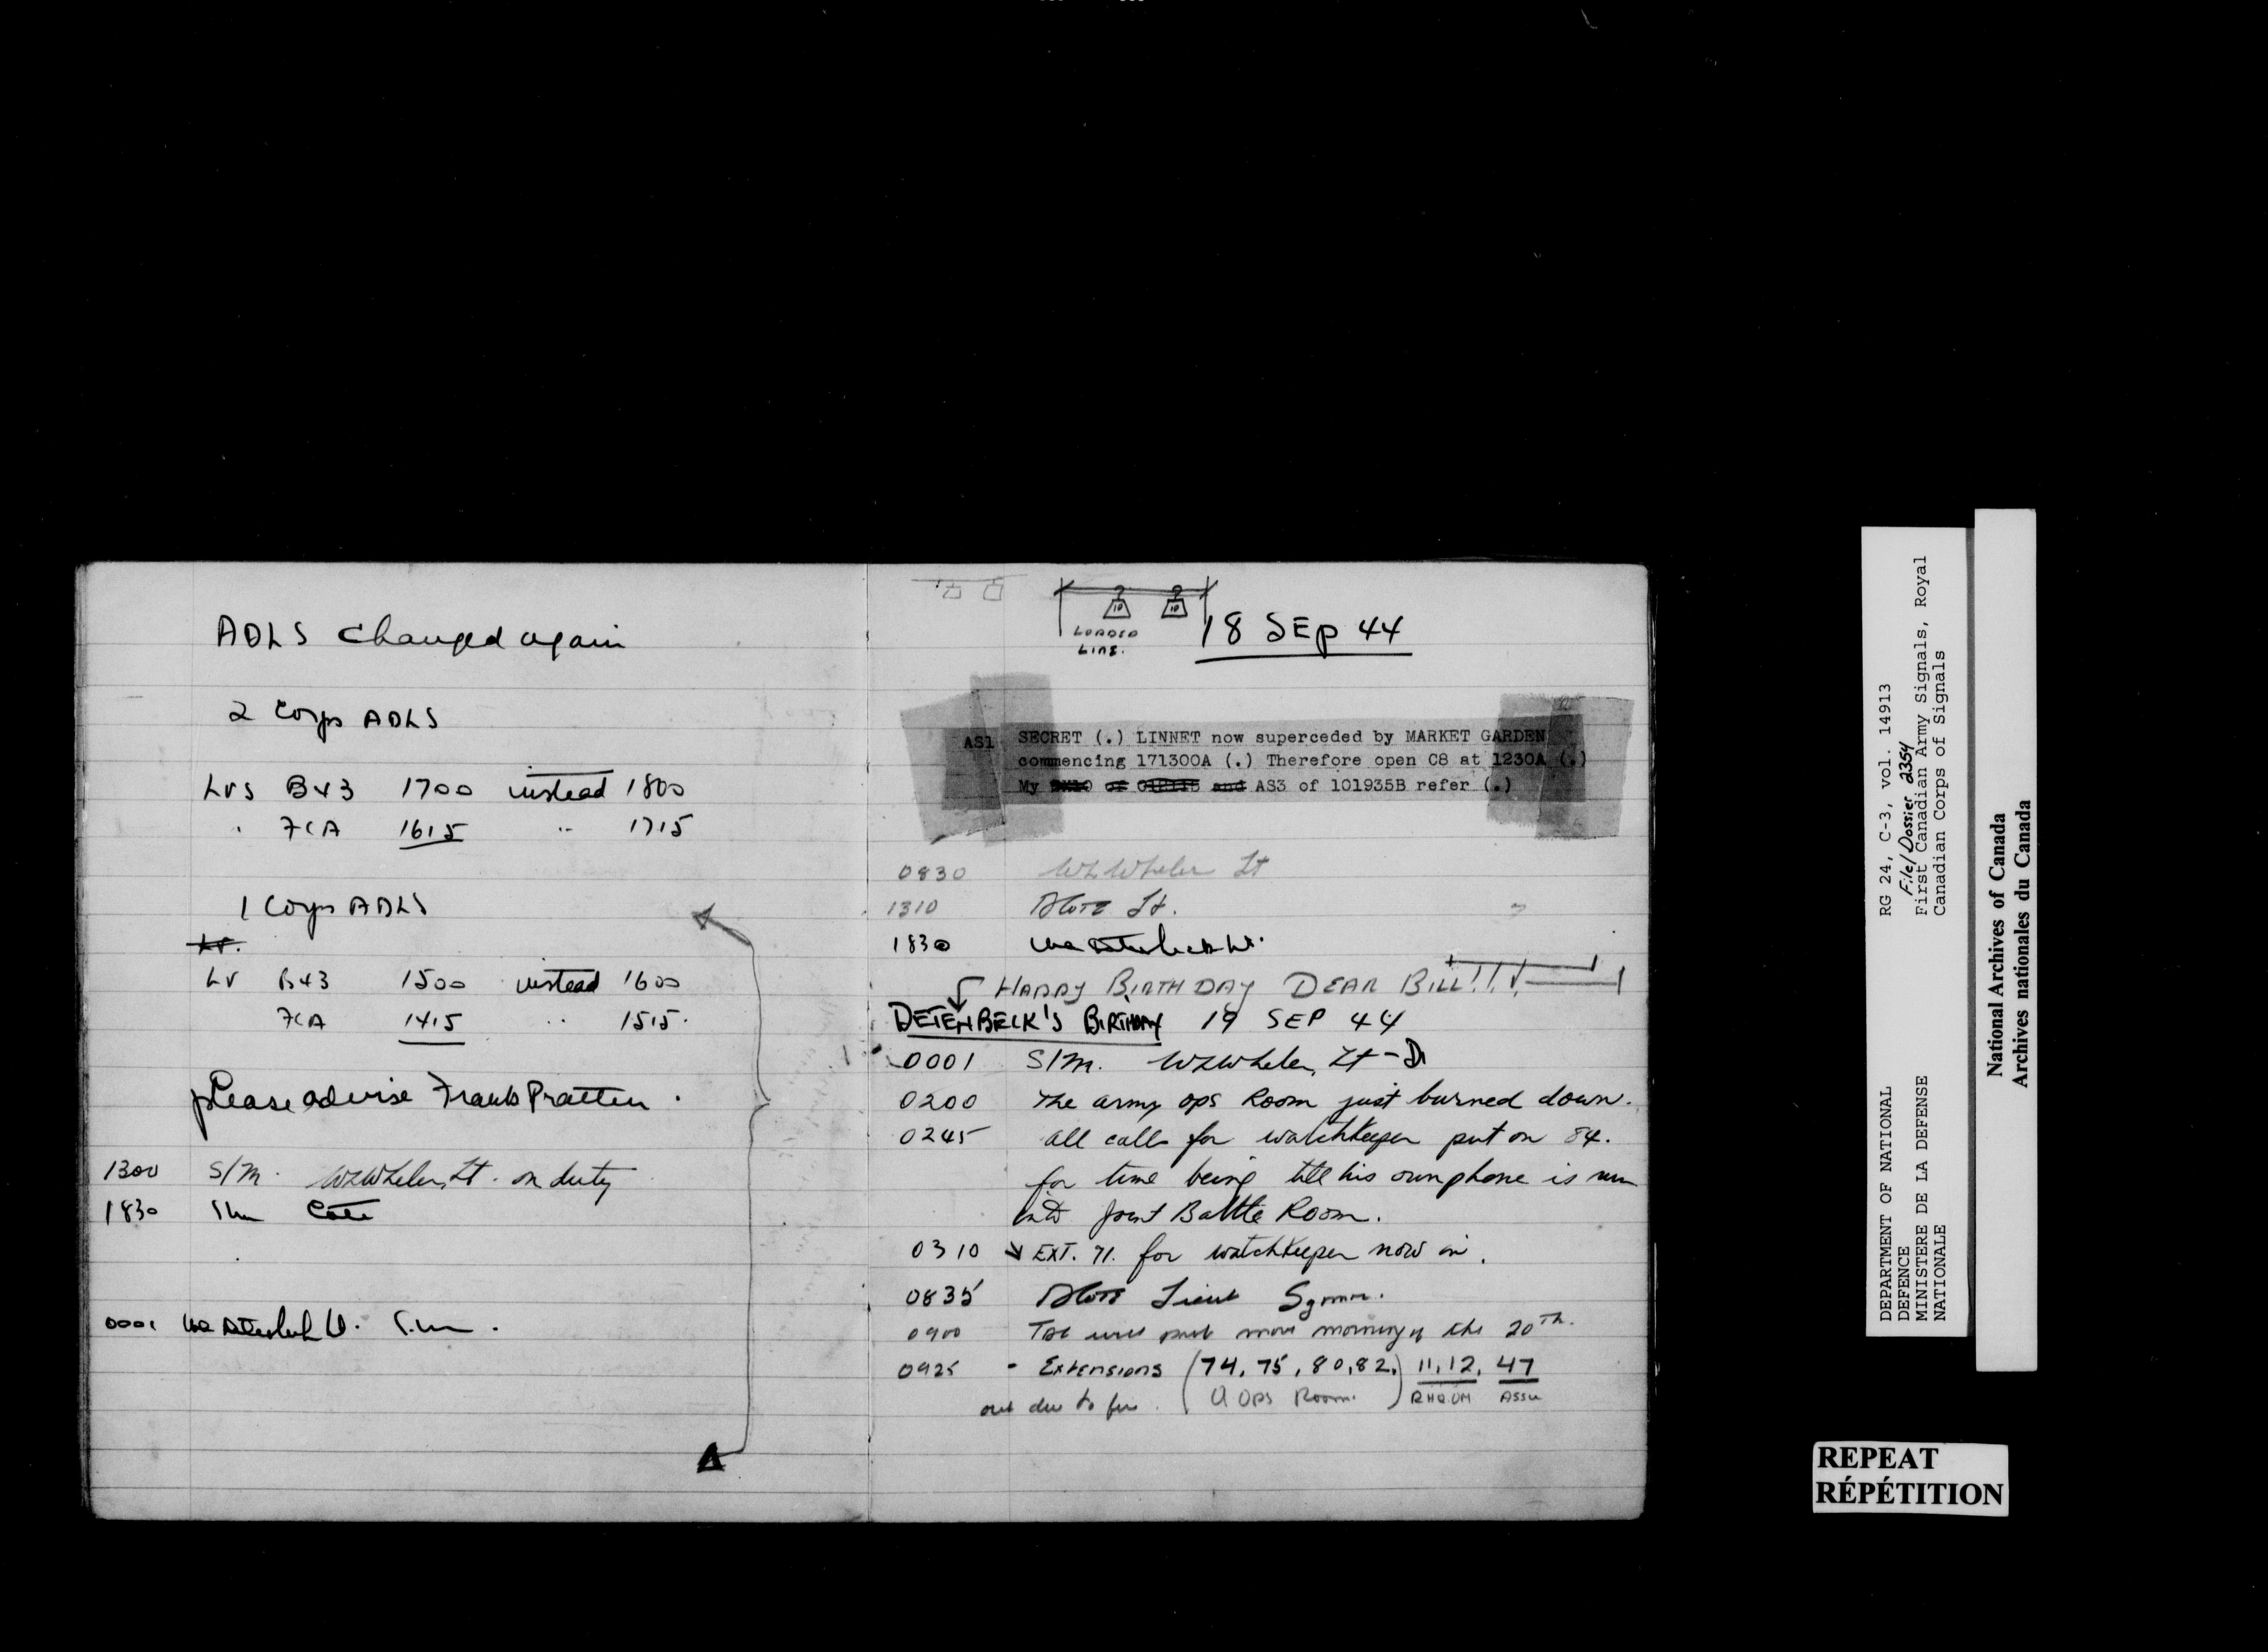 ADLS changed again
2 Corps ADLS
Lvs B43 1700 instead 1800
" FCA 1615 " 1715
1 Corps ADLS
Lv.
Lv B43 1500 instead 1600
FCA 1415 " 1515.
please advise Frank Pratten.
1300 S/M. WLWheler, Lt. on duty
1830
0001
10 10
LOADED
LINE.
18 SEP 44
AS1 SECRET (.) LINNET now superceded by MARKET GARDEN
commencing 171300A (.) Therefore open C8 at 1230A (.)
My of and AS3 of 101935B refer (.)
0830 WLWheler Lt
1310 Lt.
1830
HAPPY BIRTHDAY DEAR BILL!!!!
DETENBECK'S BIRTHDAY 19 SEP 44
0001 S/M. WLWheler, Lt -
0200 The army ops Room just burned down.
0245 all calls for watchkeeper put on 84.
for time being till his own phone is run
into Joint Battle Room.
0310 EXT. 71. for watchkeeper now in.
0835 Lieut
0900 Tac will move morning of the 20TH.
0925 - Extensions (74, 75, 80, 82,) 11, 12, 47
out due to fire. (Ops Room.) ASSU
DEPARTMENT OF NATIONAL
DEFENCE
MINISTERE DE LA DEFENSE
NATIONALE
RG 24, C-3, vol. 14913
File/Dossier 2354
First Canadian Army Signals, Royal
Canadian Corps of Signals
National Archives of Canada
Archives nationales du Canada
REPEAT
RÉPÉTITION